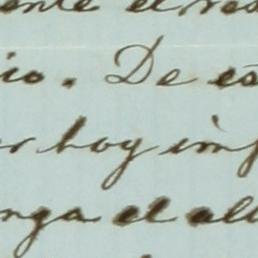 ente el res
io. De es
r hoy im
nga el all